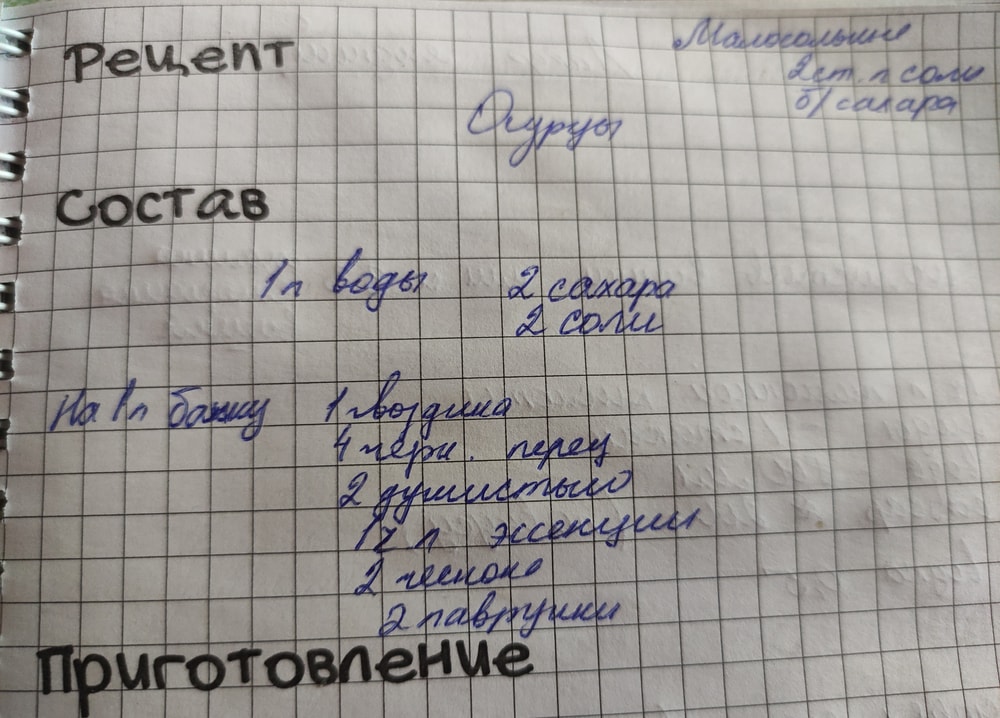 Рецепт
Малосольные
2 ст. л соли
б/сахара
Огурцы
Состав
1л воды 2 сахара
2 соли
На 1л банку 1 гвоздика
4 черн. перец
2 душистый
1 ч л эссенции
2 чеснока
2 лаврушки
Приготовление